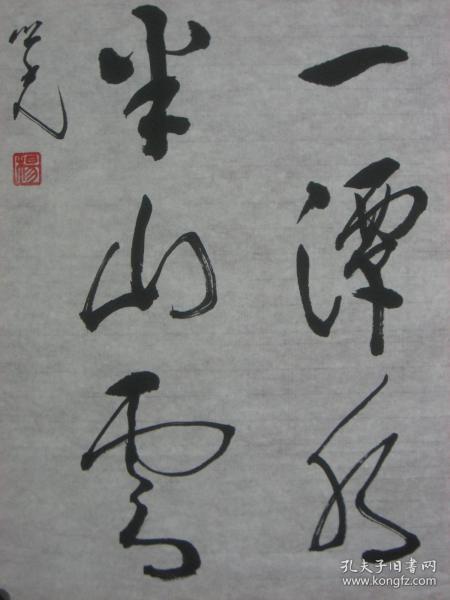 一潭水
半山雲
楊
孔夫子旧书网
www.kongfz.com